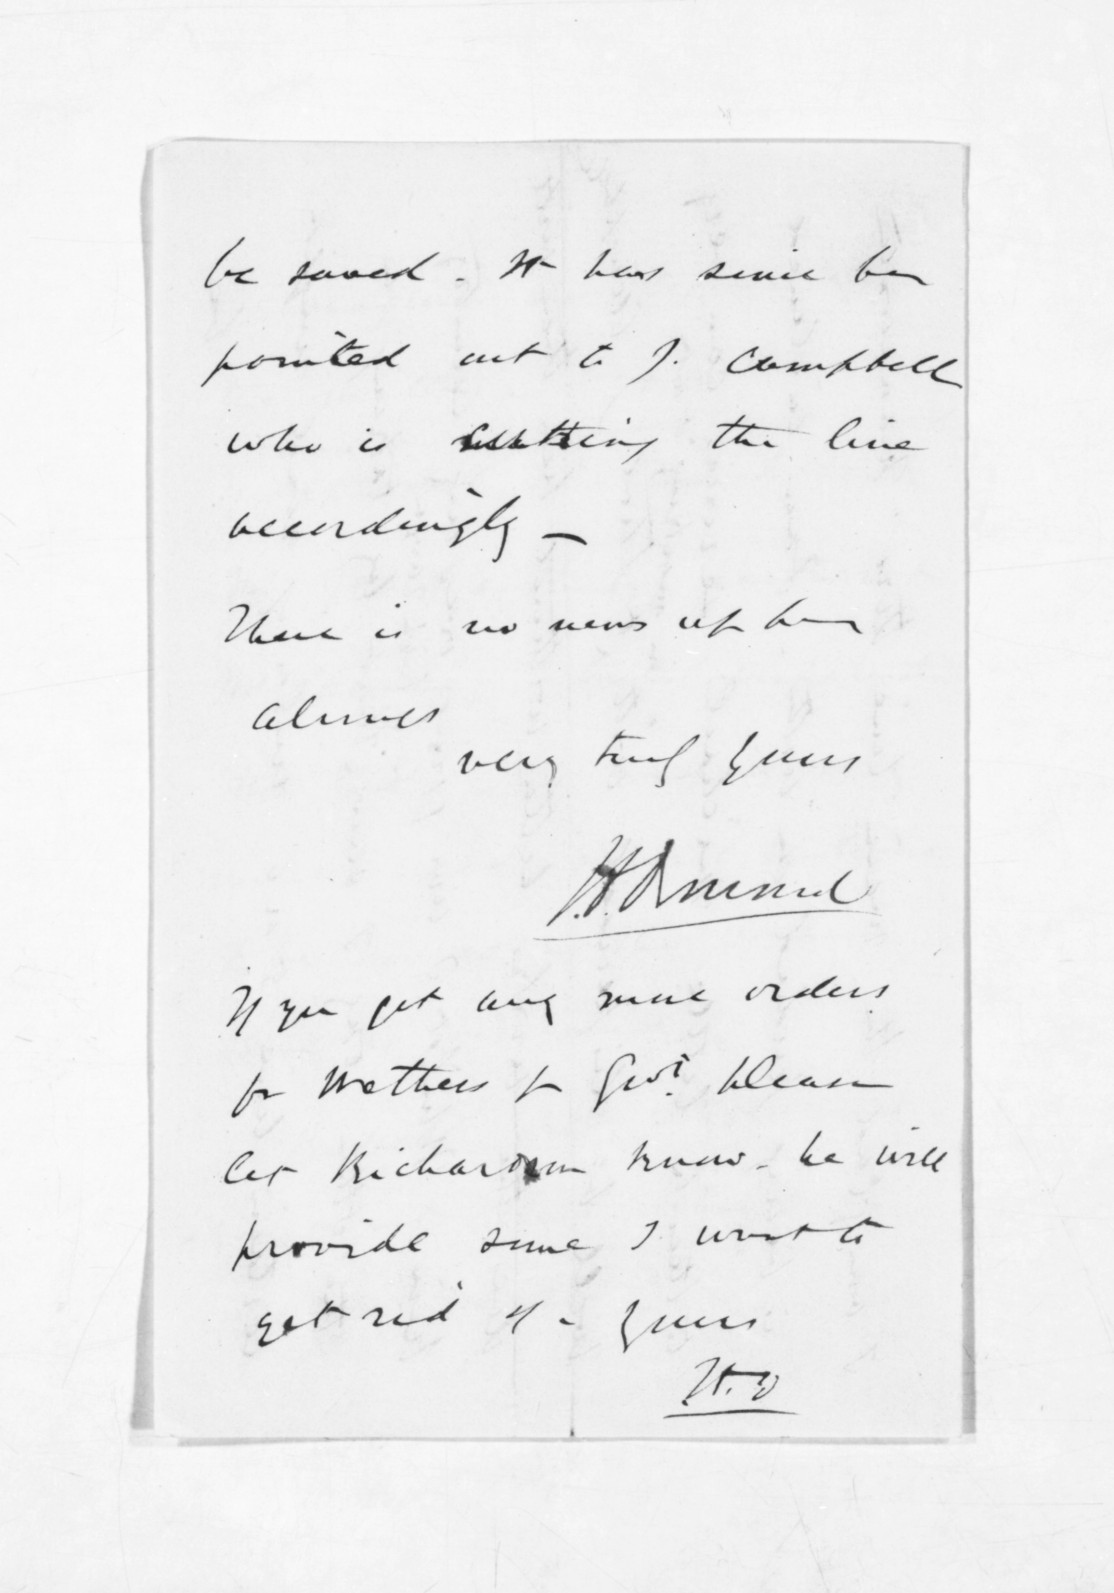 be saved - It has since been
pointed out to J. Campbell
who is cutting the line
accordingly —
There is no news up here
always
very truly yours
J.D. Ormond
If you get any more orders
for Wethers for Govt. please
let Richardson know - he will
provide some I want to
get rid of - yours